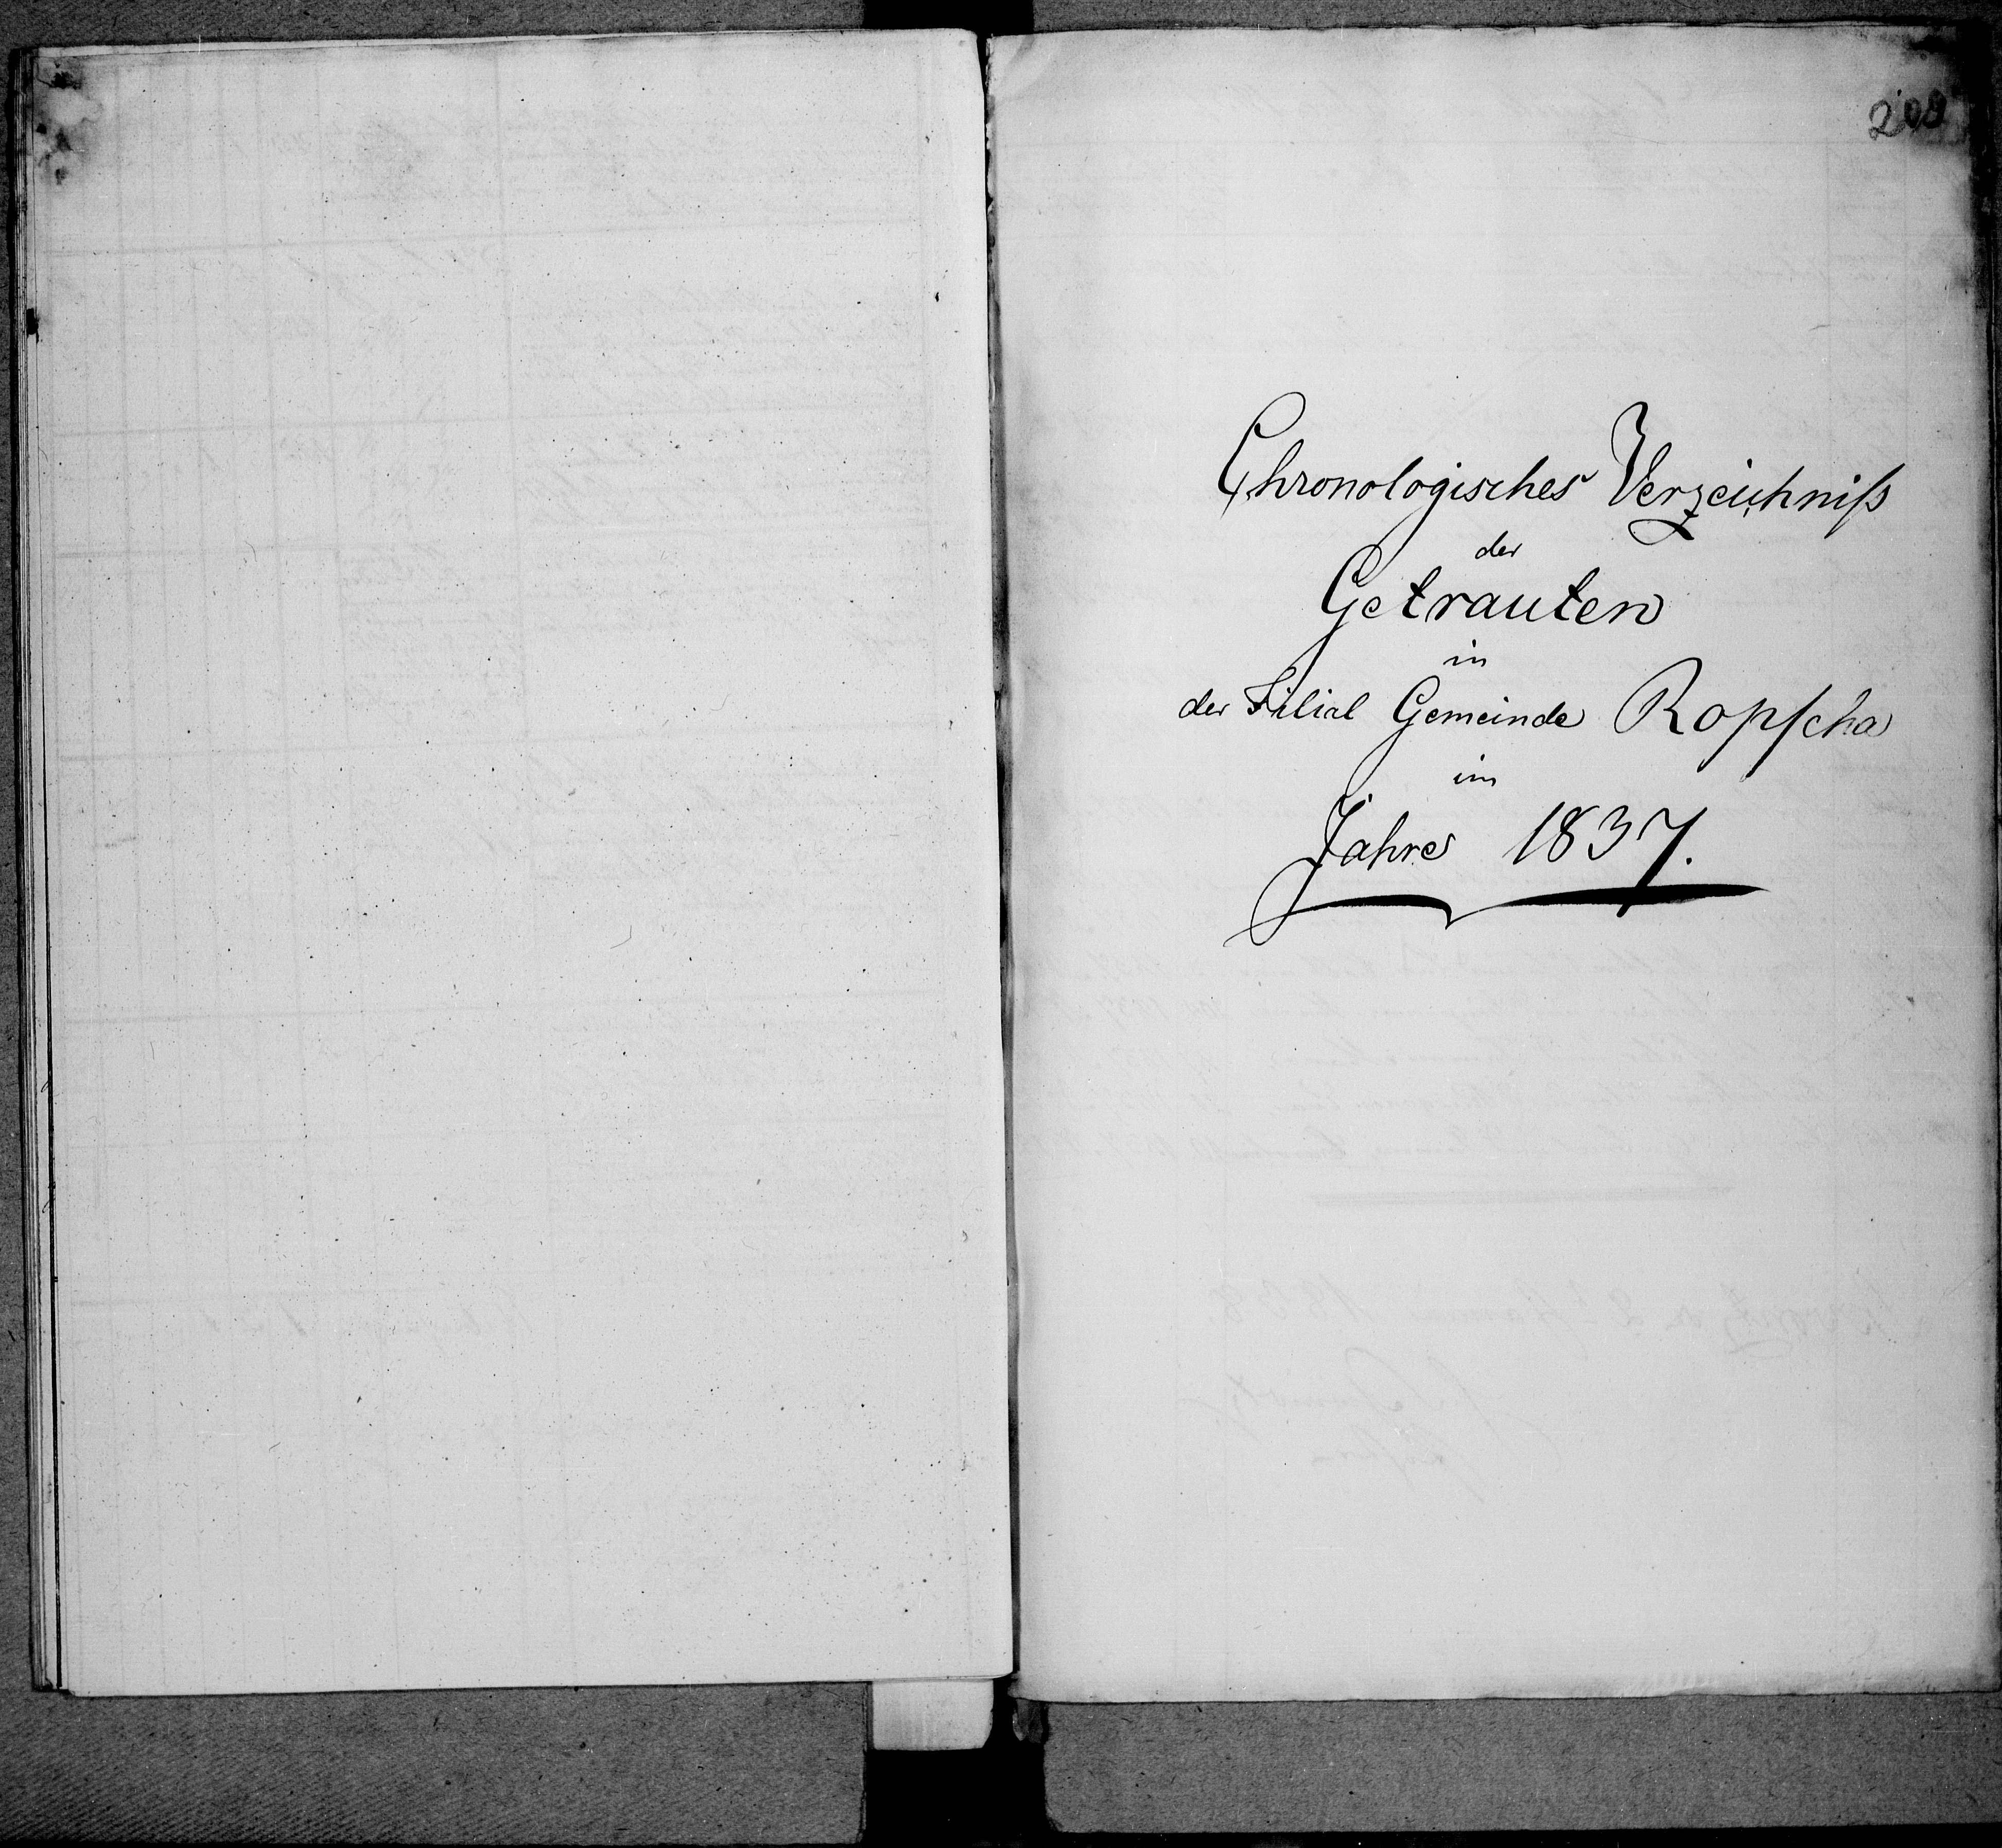 Chronologisches Verzeichniß
der
Getrauten
in
der Filial Gemeinde Ropscha
im
Jahre 1837.